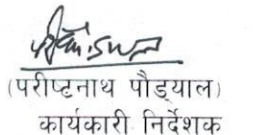 (परीष्टनाथ पौड्याल)
कार्यकारी निर्देशक